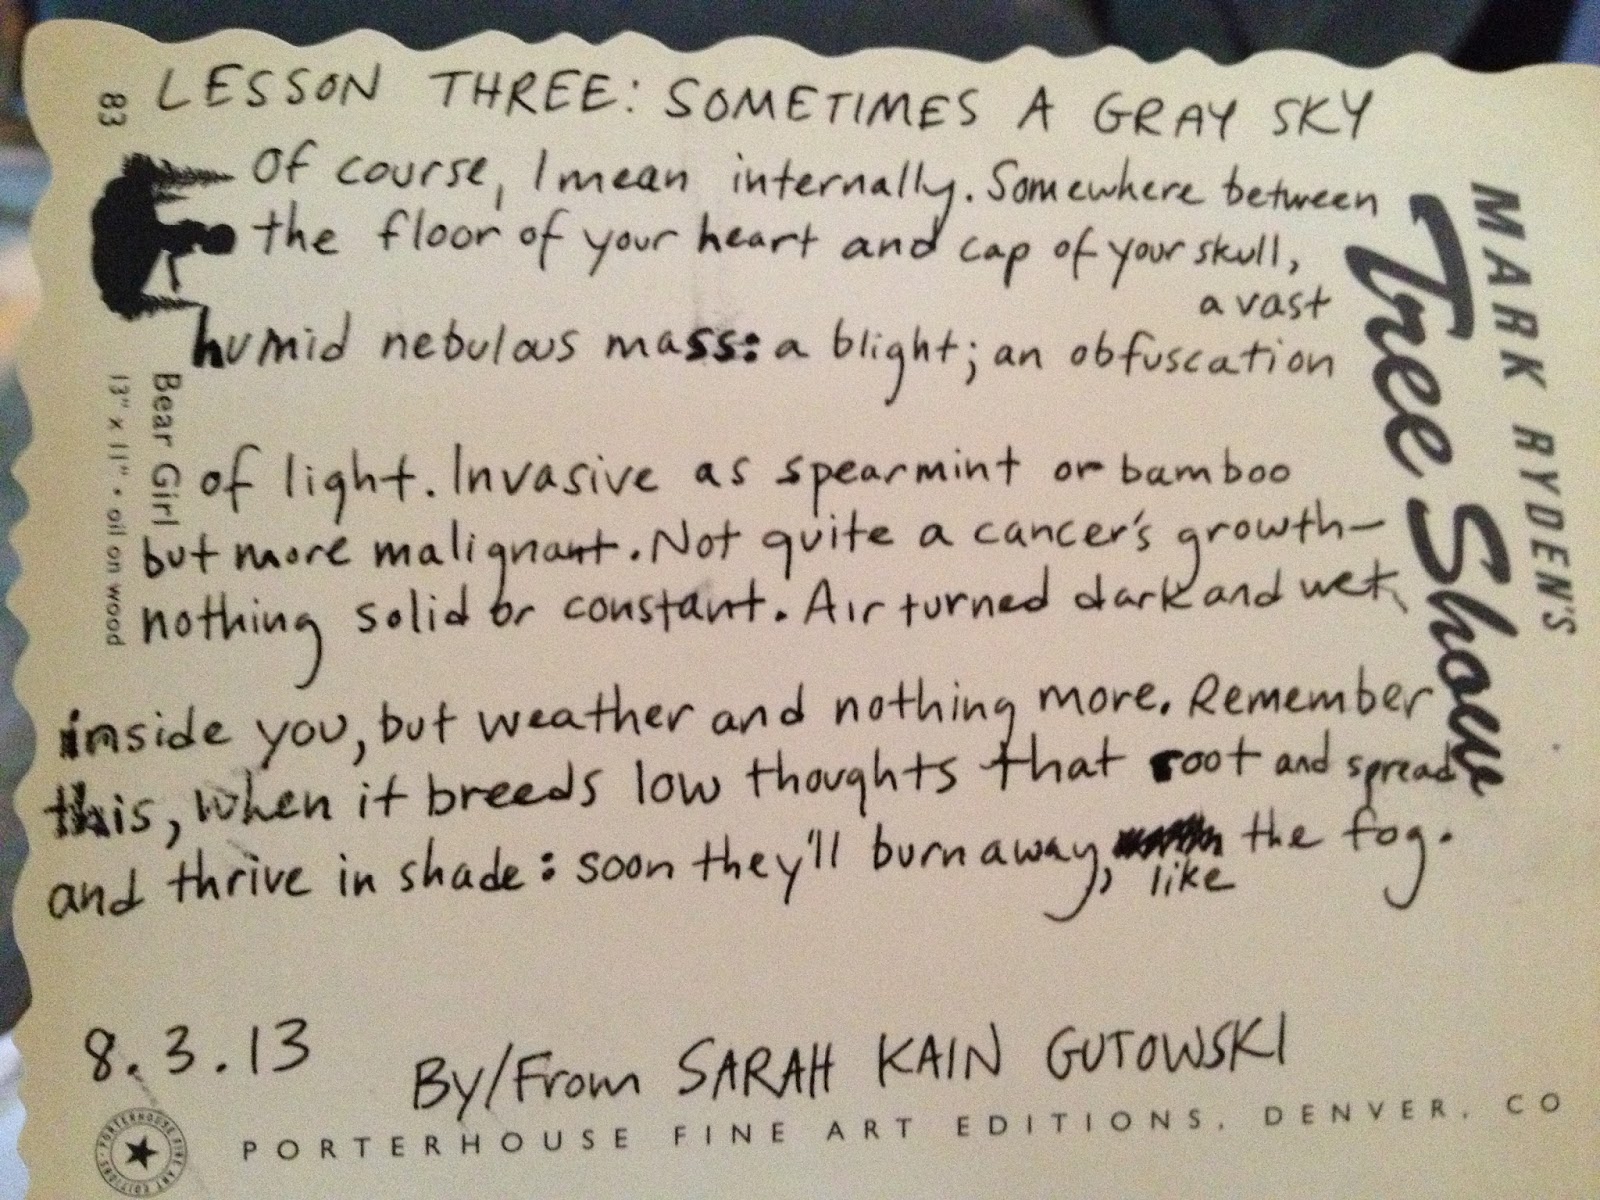 LESSON THREE: SOMETIMES A GRAY SKY
Of course, I mean internally. Somewhere between
the floor of your heart and cap of your skull,
a vast
humid nebulous mass: a blight; an obfuscation
of light. Invasive as spearmint or bamboo
but more malignant. Not quite a cancer's growth—
nothing solid or constant. Air turned dark and wet
inside you, but weather and nothing more. Remember
this, when it breeds low thoughts that root and spread
and thrive in shade: soon they'll burn away, the fog.
like
8.3.13
By/From SARAH KAIN GUTOWSKI
PORTERHOUSE FINE ART EDITIONS, DENVER, CO
MARK RYDEN'S
Tree Show
83
Bear Girl
13" x 11" • oil on wood
PORTERHOUSE FINE ART EDITIONS